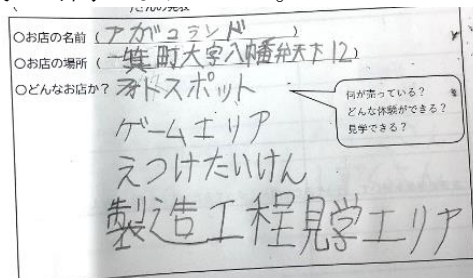 さんの発表
○お店の名前(アカ゛ユランド)
○お店の場所(箕町大字八幡弁天下12)
○どんなお店か? フォトスポット
ゲームエリア
えつけたいけん
製造工程見学エリア
何が売っている?
どんな体験ができる?
見学できる?